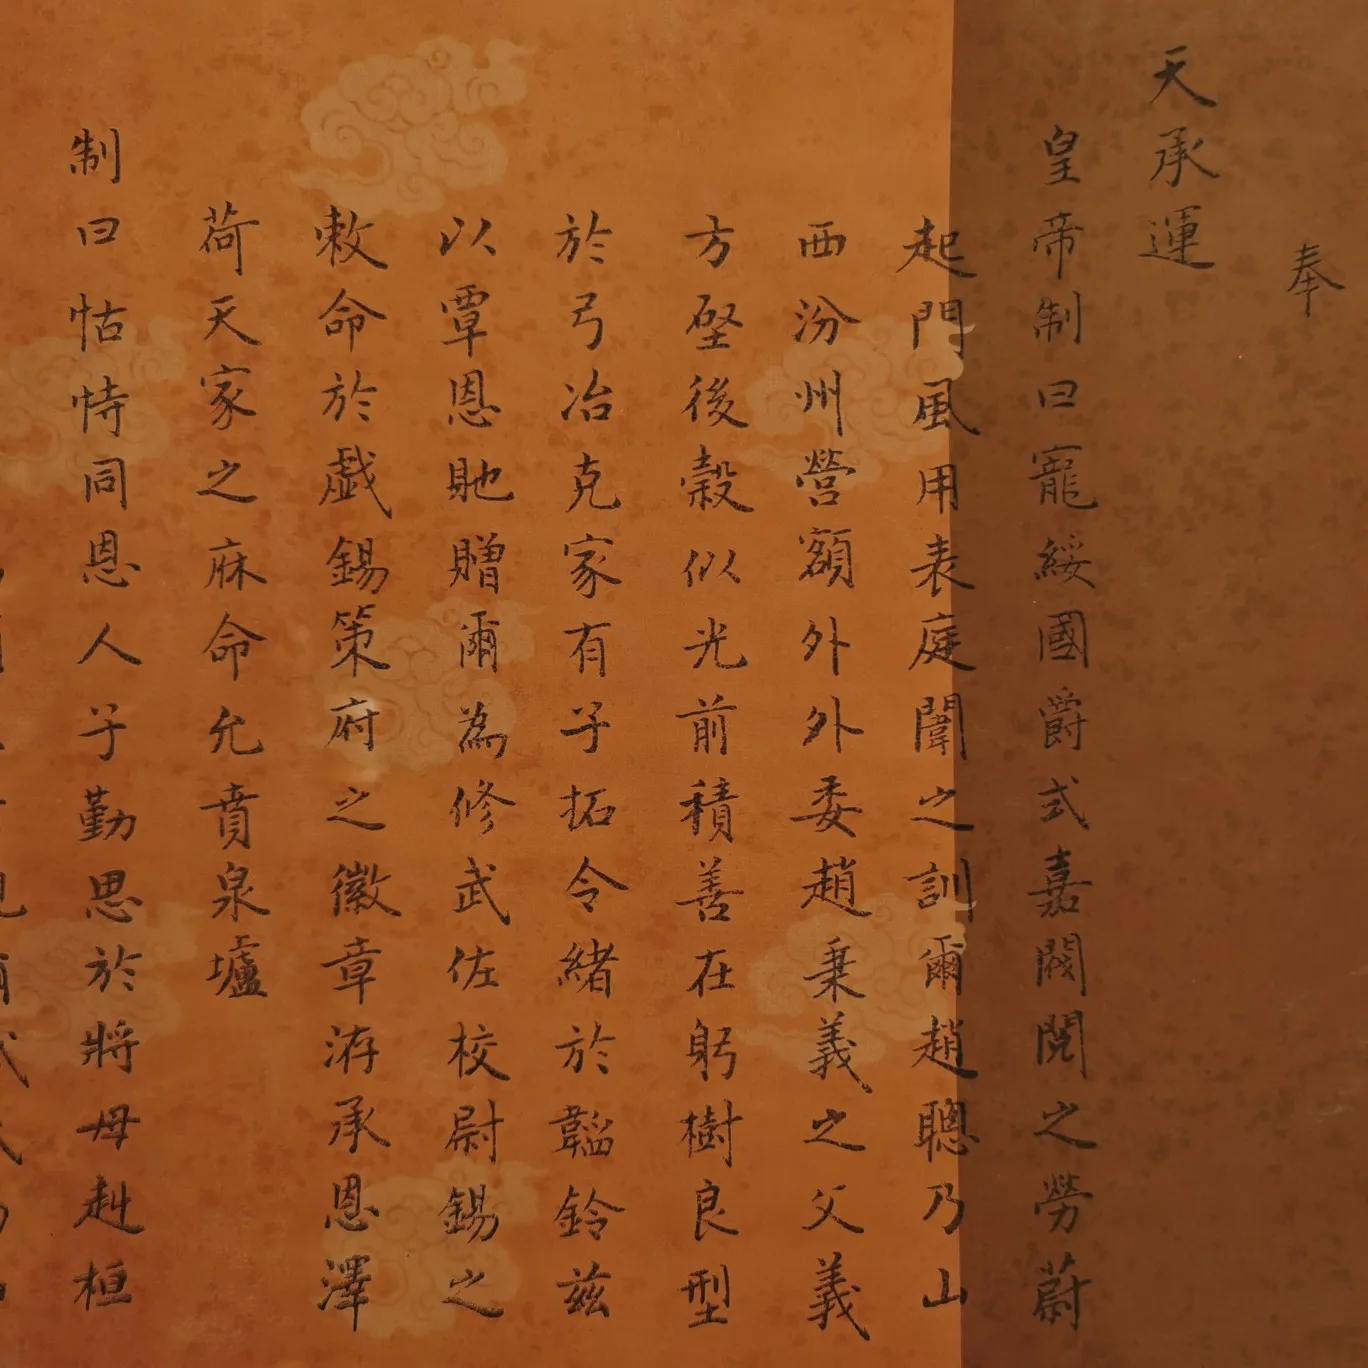 奉
天承運
皇帝制曰寵綏國爵式嘉閥閱之勞蔚
起門風用表庭闈之訓爾趙聰乃山
西汾州營額外外委趙秉義之父義
方啓後穀似光前積善在躬樹良型
於弓冶克家有子拓令緒於韜鈐茲
以覃恩貤贈爾為修武佐校尉錫之
敕命於戲錫策府之徽章洊承恩澤
荷天家之庥命允賁泉壚
制曰怙恃同恩人子勤思於將母赳桓